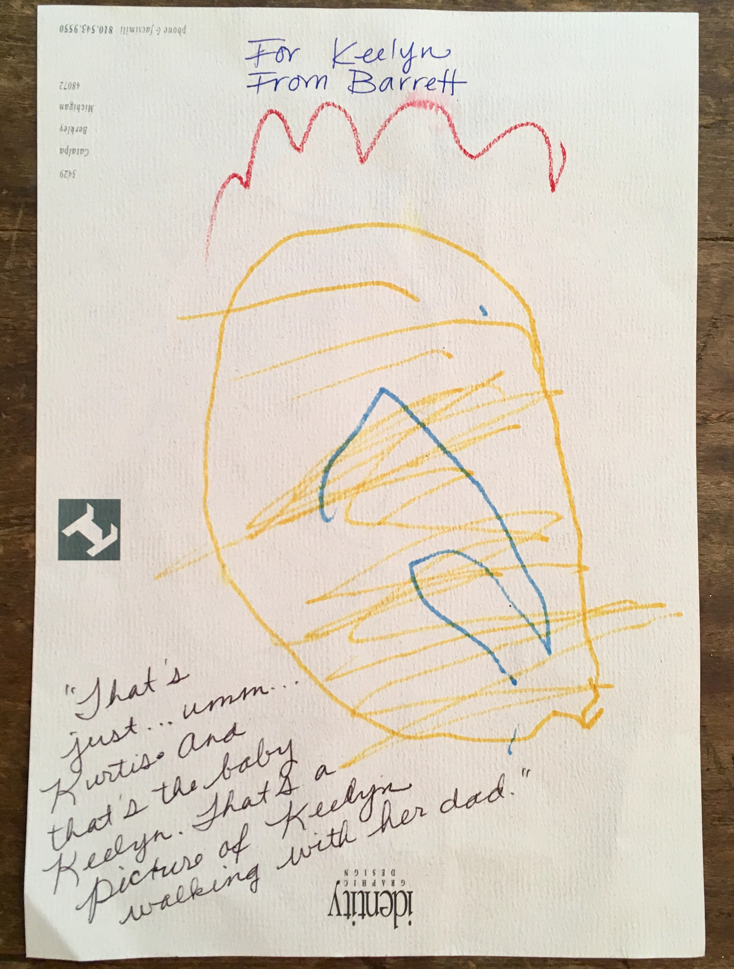 For Keelyn
From Barrett
"That's
just... umm...
Kurtis. And
that's the baby
Keelyn. That's a
picture of Keelyn
walking with her dad."
identity
GRAPHIC
DESIGN
3429
Catalpa
Berkley
Michigan
48072
phone & facsimile 810.543.9550